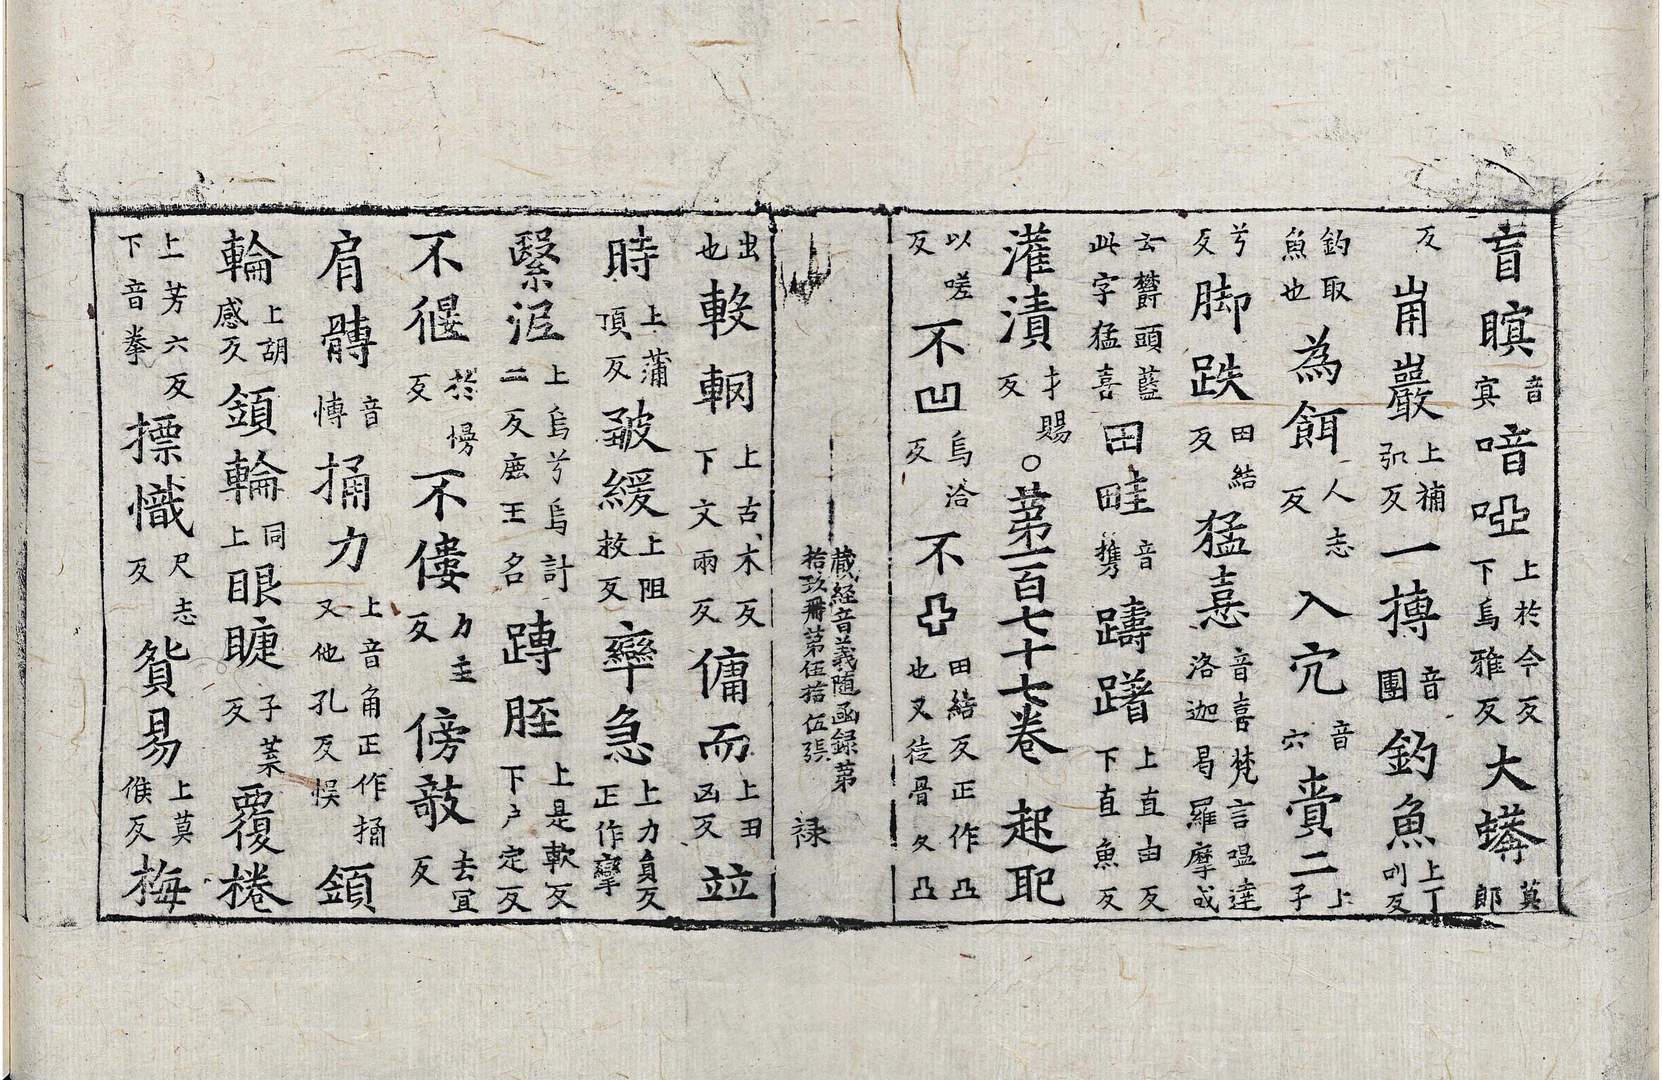 盲瞑音㝠喑啞上於今反下烏雅反大蟒莫郎
反崩巖上補弘反一摶音團釣魚上丁叫反
釣取魚也為餌人志反入宂音穴賷二上子
兮反脚跌田結反猛憙音喜梵言嗢達洛迦曷羅摩或
云欝頭藍此字猛喜田畦音攜躊躇上直由反下直魚反
灌漬才賜反○第一百七十七卷 起耴
以嗟反不凹烏洽反不凸田結反正作凸也又徒骨反凸
藏經音義随函録第拾玖冊第伍拾伍張 禄
出也較輞上古木反下文兩反傭而上丑凶反竝
時上蒲頂反皺緩上阻救反㝈急上力負反正作攣
緊泥上烏兮烏計二反鹿王名蹲脛上是軟反下户定反
不偃於幰反不僂力主反傍敧去冝反
肩髆音愽捅力上音角正作捔又他孔反悮頷
輪上胡感反頷輪同上眼睫子葉反覆棬
上芳六反下音拳摽幟尺志反貿易上莫候反梅